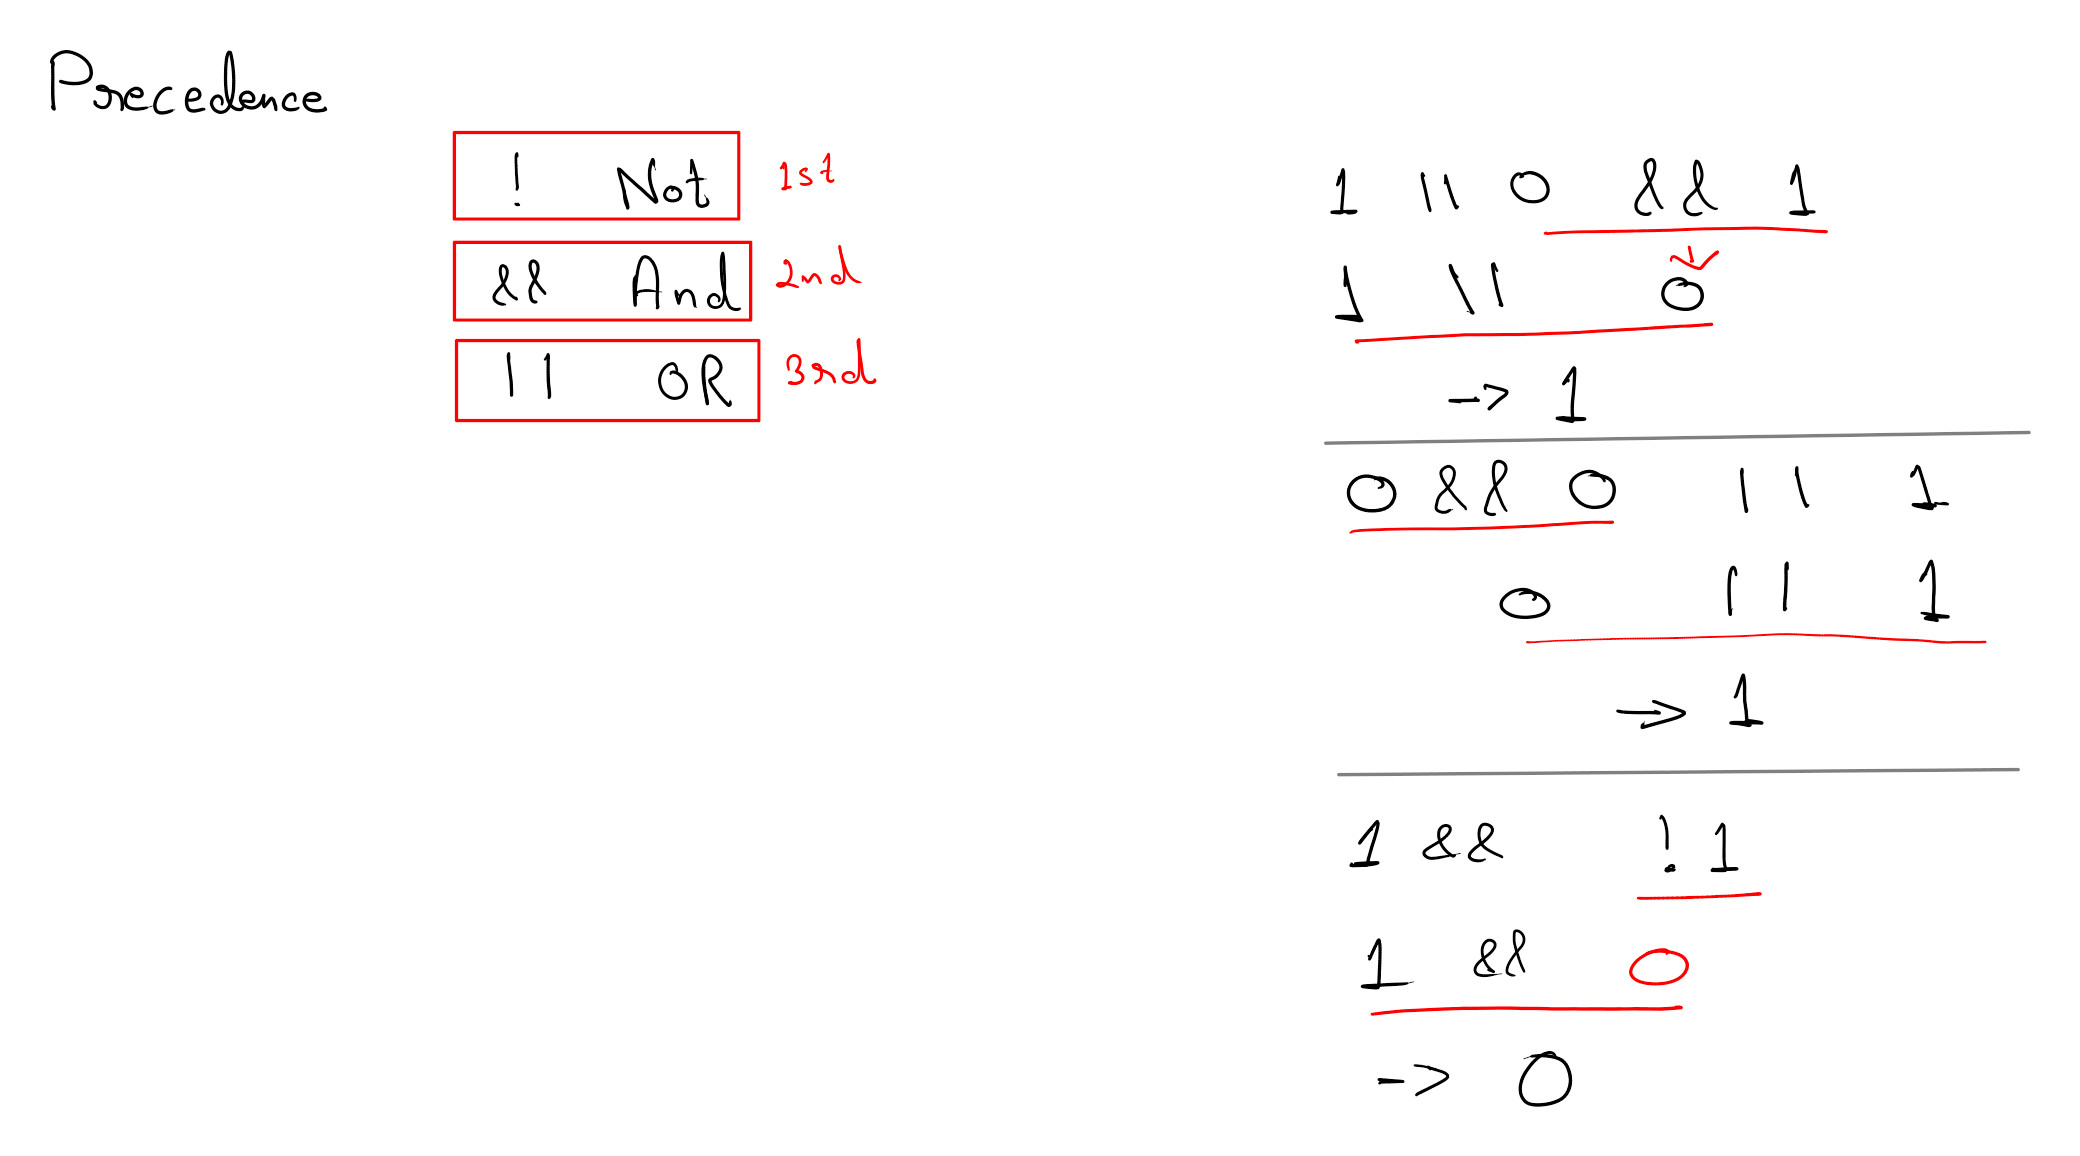 Precedence
! Not 1st
&& And 2nd
|| OR 3rd
1 || 0 && 1
1 || 0
-> 1
0 && 0 || 1
0 || 1
-> 1
1 && !1
1 && 0
-> 0